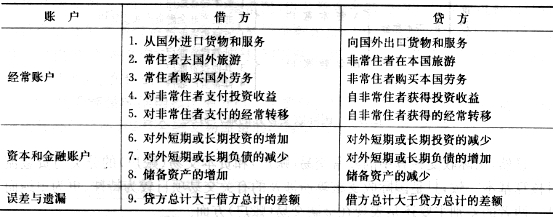 账 户 借 方 贷 方
1. 从国外进口货物和服务 向国外出口货物和服务
2. 常住者去国外旅游 非常住者在本国旅游
经常账户 3. 常住者购买国外劳务 非常住者购买本国劳务
4. 对非常住者支付投资收益 自非常住者获得投资收益
5. 对非常住者支付的经常转移 自非常住者获得的经常转移
6. 对外短期或长期投资的增加 对外短期或长期投资的减少
资本和金融账户 7. 对外短期或长期负债的减少 对外短期或长期负债的增加
8. 储备资产的增加 储备资产的减少
误差与遗漏 9. 贷方总计大于借方总计的差额 借方总计大于贷方总计的差额